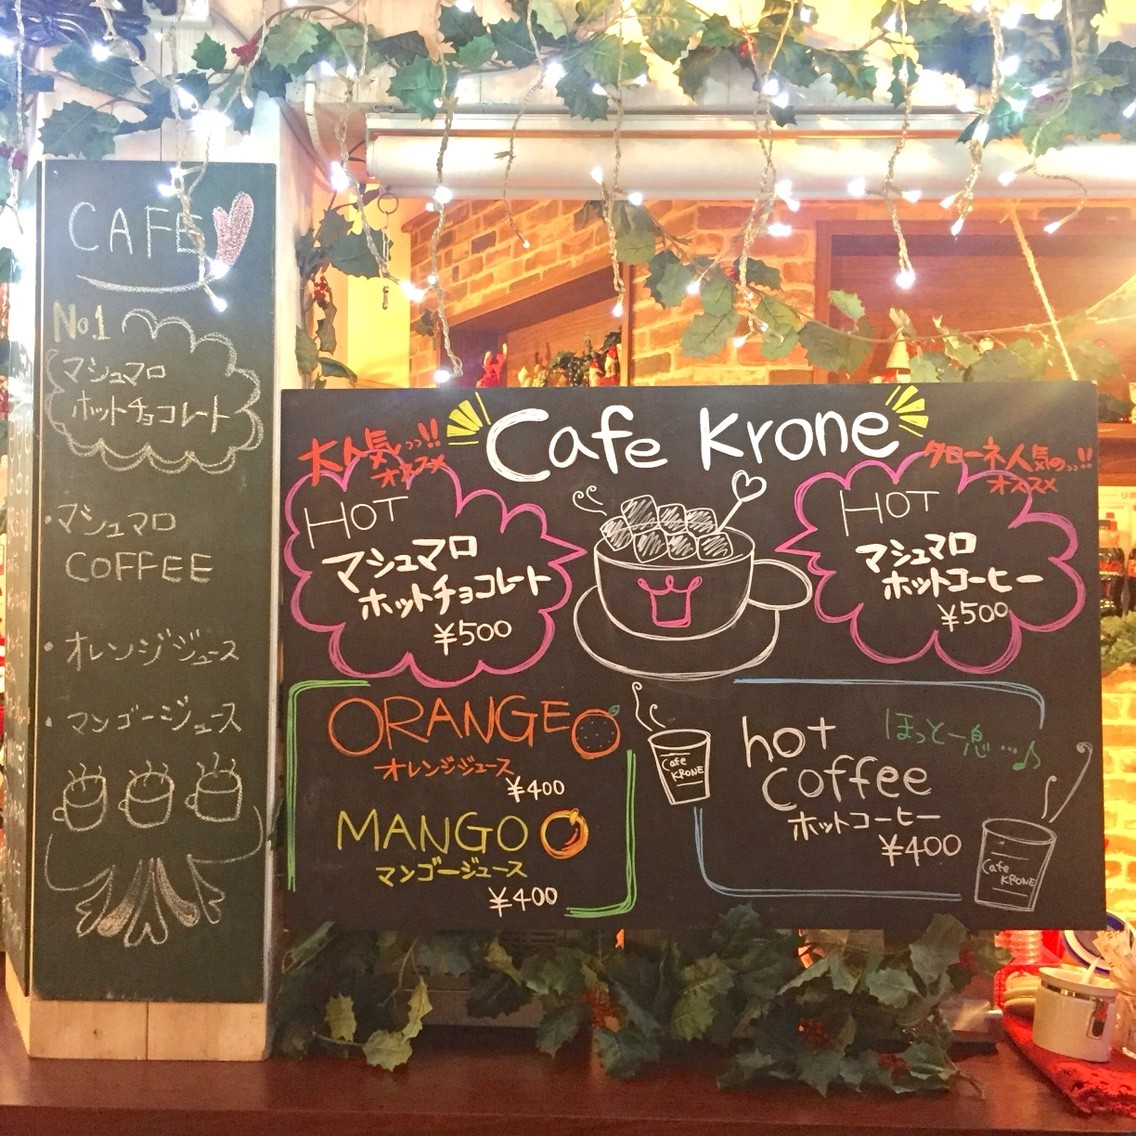 CAFE
No.1
マシュマロ
ホットチョコレート
・マシュマロ
COFFEE
・オレンジジュース
・マンゴージュース
Cafe Krone
大人気っっ!!
オススメ
HOT
マシュマロ
ホットチョコレート
¥500
クローネ人気のっっ!!
オススメ
HOT
マシュマロ
ホットコーヒー
¥500
ORANGE
オレンジジュース
¥400
MANGO
マンゴージュース
¥400
Cafe
KRONE
ほっと一息…♪
hot
coffee
ホットコーヒー
¥400
Cafe
KRONE